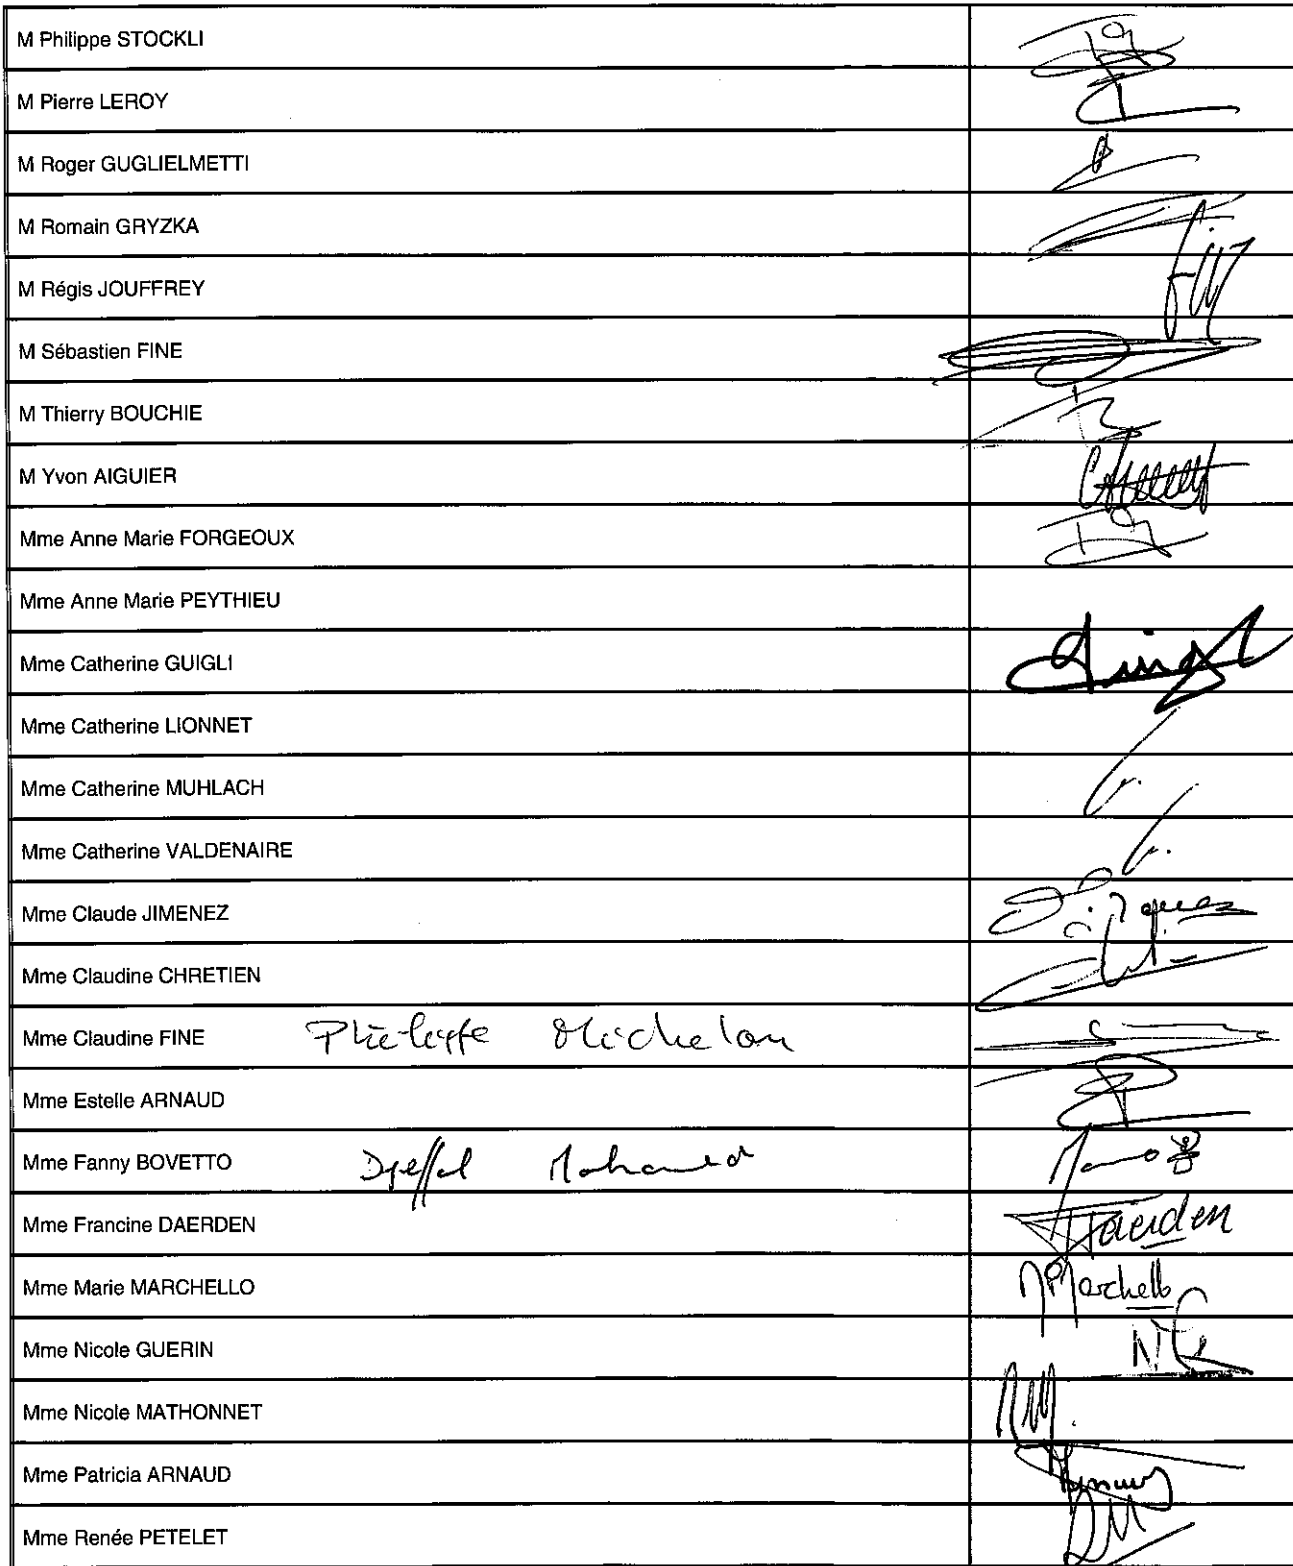 M Philippe STOCKLI
M Pierre LEROY
M Roger GUGLIELMETTI
M Romain GRYZKA
M Régis JOUFFREY
M Sébastien FINE
M Thierry BOUCHIE
M Yvon AIGUIER
Mme Anne Marie FORGEOUX
Mme Anne Marie PEYTHIEU
Mme Catherine GUIGLI
Mme Catherine LIONNET
Mme Catherine MUHLACH
Mme Catherine VALDENAIRE
Mme Claude JIMENEZ
Mme Claudine CHRETIEN
Mme Claudine FINE Philippe Michelon
Mme Estelle ARNAUD
Mme Fanny BOVETTO Djeffal Mohamed
Mme Francine DAERDEN Daerden
Mme Marie MARCHELLO Marchello
Mme Nicole GUERIN
Mme Nicole MATHONNET
Mme Patricia ARNAUD
Mme Renée PETELET